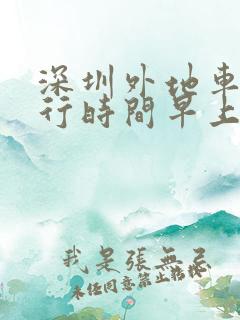 深圳外地車
行時間早上
我是張無忌
未经同意禁止转载